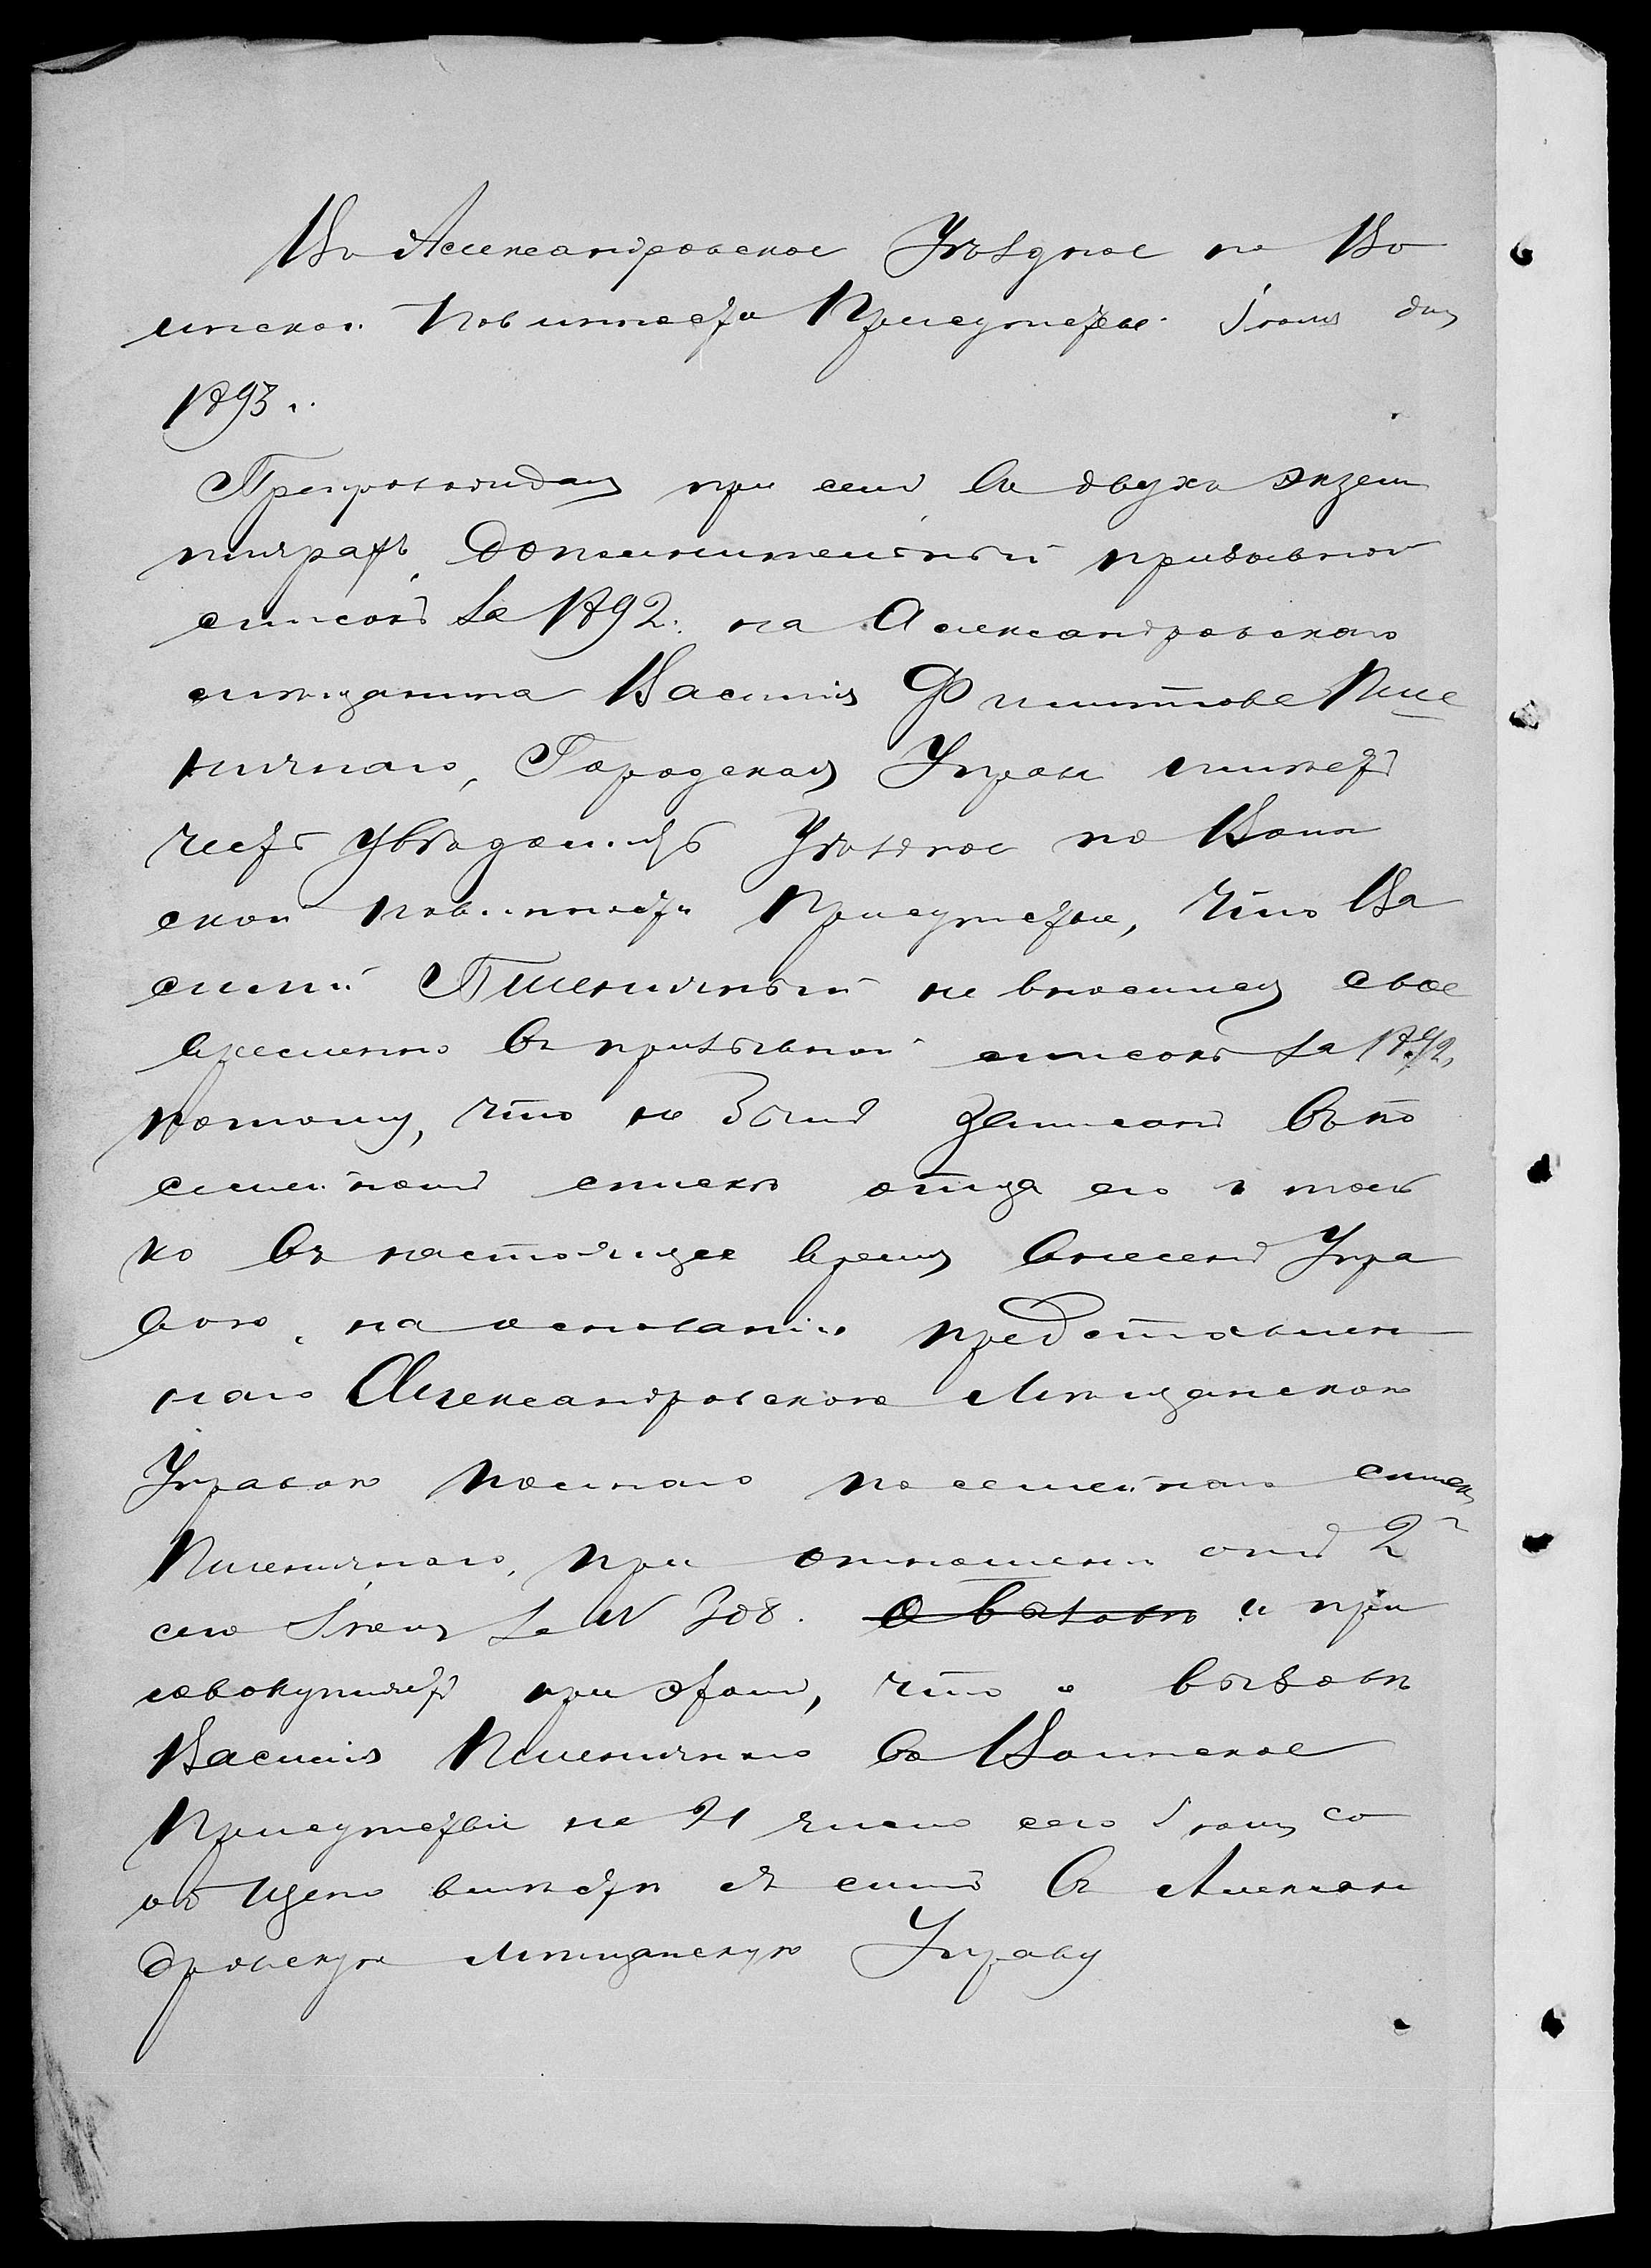 Въ Александровское Уѣздное по Во
инской повинности Присутствіе. Іюня дня
1893 г.
Препровождая при семъ въ двухъ экзем
плярахъ дополнительный призывной
списокъ за 1892 г. на Александровскаго
мѣщанина Василія Филиппова Пше
ничнаго, Городская Управа имѣетъ
честь увѣдомить Уѣздное по Воин
ской повинности Присутствіе, что Ва
силій Пшеничный не внесенъ свое
временно въ призывной списокъ за 1892,
потому, что не былъ записанъ въ по
семейномъ спискѣ отца его и толь
ко въ настоящее время внесенъ Упра
вою, на основаніи представлен
наго Александровскою Мѣщанскою
Управою полнаго посемейнаго списка
Пшеничнаго, при отношеніи отъ 2го
сего Іюня за № 308. о вызовѣ и при
совокупляетъ при этомъ, что о вызовѣ
Василія Пшеничнаго въ Воинское
Присутствіе на 21 число сего Іюня со
общено вмѣстѣ съ симъ въ Алексан
дровскую Мѣщанскую Управу